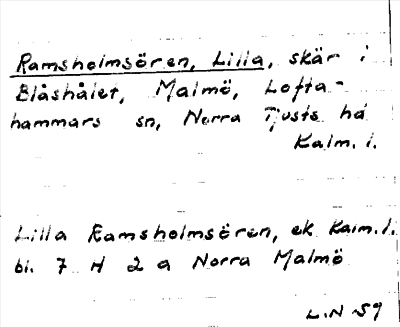 Ramsholmsören, Lilla, skär i
Blåshålet, Malmö, Lofta-
hammars sn, Norra Tjusts hd
Kalm. l.
Lilla Ramsholmsören, ek Kalm. l.
bl. 7 H 2 a Norra Malmö
L.N 59